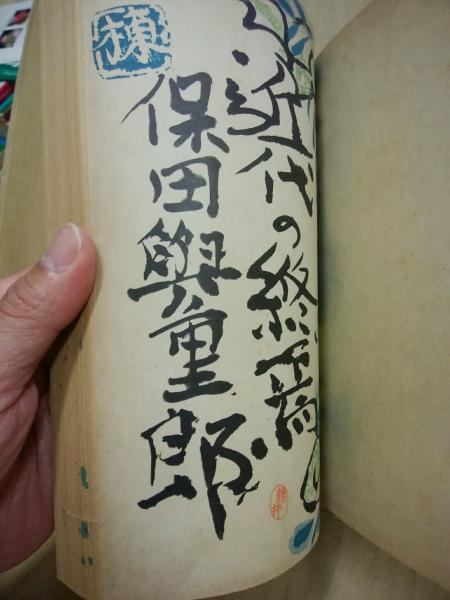 近代の終焉
保田與重郎